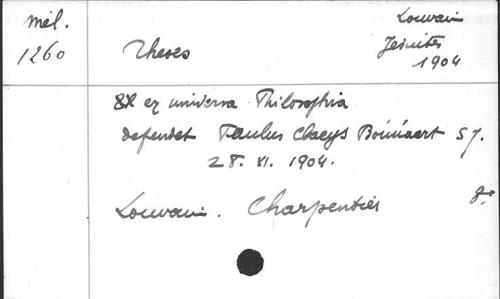 Mél.
1260
Theses
Louvain
Jésuites
1904
ex universa Philosophia
defendet Paulus Claeys Boúúaert S.J.
28. XI. 1904.
Louvain. Charpentier 8°